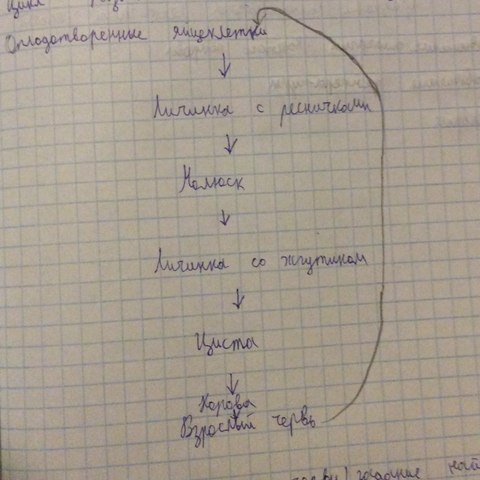 Цикл
Оплодотворенные яйцеклетки
Личинка с ресничками
Малюск
Личинка со жгутиком
Циста
Корова
Взрослый червь